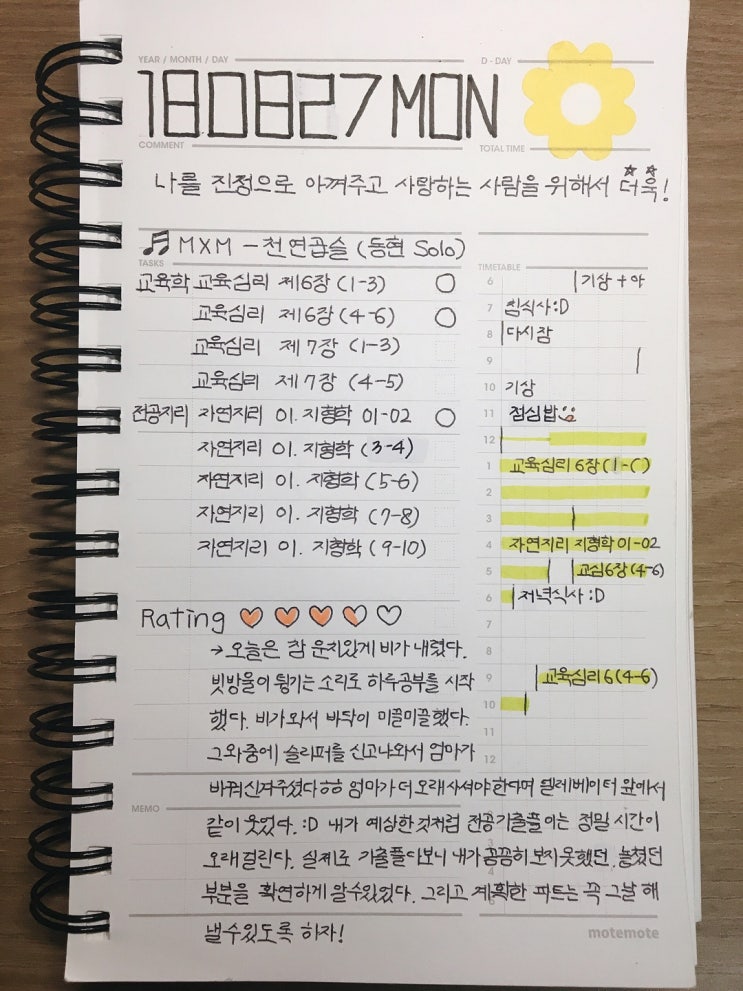 YEAR / MONTH / DAY
D - DAY
180827 MON
COMMENT
TOTAL TIME
나를 진정으로 아껴주고 사랑하는 사람을 위해서 더욱!
MXM - 천연곱슬 (동현 Solo)
TASKS
교육학 교육심리 제6장 (1-3)
교육심리 제6장 (4-6)
교육심리 제7장 (1-3)
교육심리 제7장 (4-5)
전공지리 자연지리 01. 지형학 01-02
자연지리 01. 지형학 (3-4)
자연지리 01. 지형학 (5-6)
자연지리 01. 지형학 (7-8)
자연지리 01. 지형학 (9-10)
TIMETABLE
6 기상 + 아
7 침식사 :D
8 다시잠
9
10 기상
11 점심밥
12
1 교육심리 6장
2
3
4 자연지리 지형학 01-02
5 교심6장 (4-6)
6 저녁식사 :D
7
8
9 교육심리 6 (4-6)
10
11
12
Rating
→ 오늘은 참 운치있게 비가 내렸다.
빗방울이 튕기는 소리로 하루공부를 시작
했다. 비가 와서 바닥이 미끌미끌했다.
그와중에 슬리퍼를 신고나와서 엄마가
바꿔신겨주셨다ㅎㅎ 엄마가 더 오래사셔야한다며 엘레베이터 앞에서
MEMO
같이 웃었다. :D 내가 예상한것처럼 전공기출풀이는 정말 시간이
오래걸린다. 실제로 기출풀다보니 내가 꼼꼼히 보지못했던, 놓쳤던
부분을 확연하게 알수있었다. 그리고 계획한 파트는 꼭 그날 해
낼수있도록 하자!
motemote